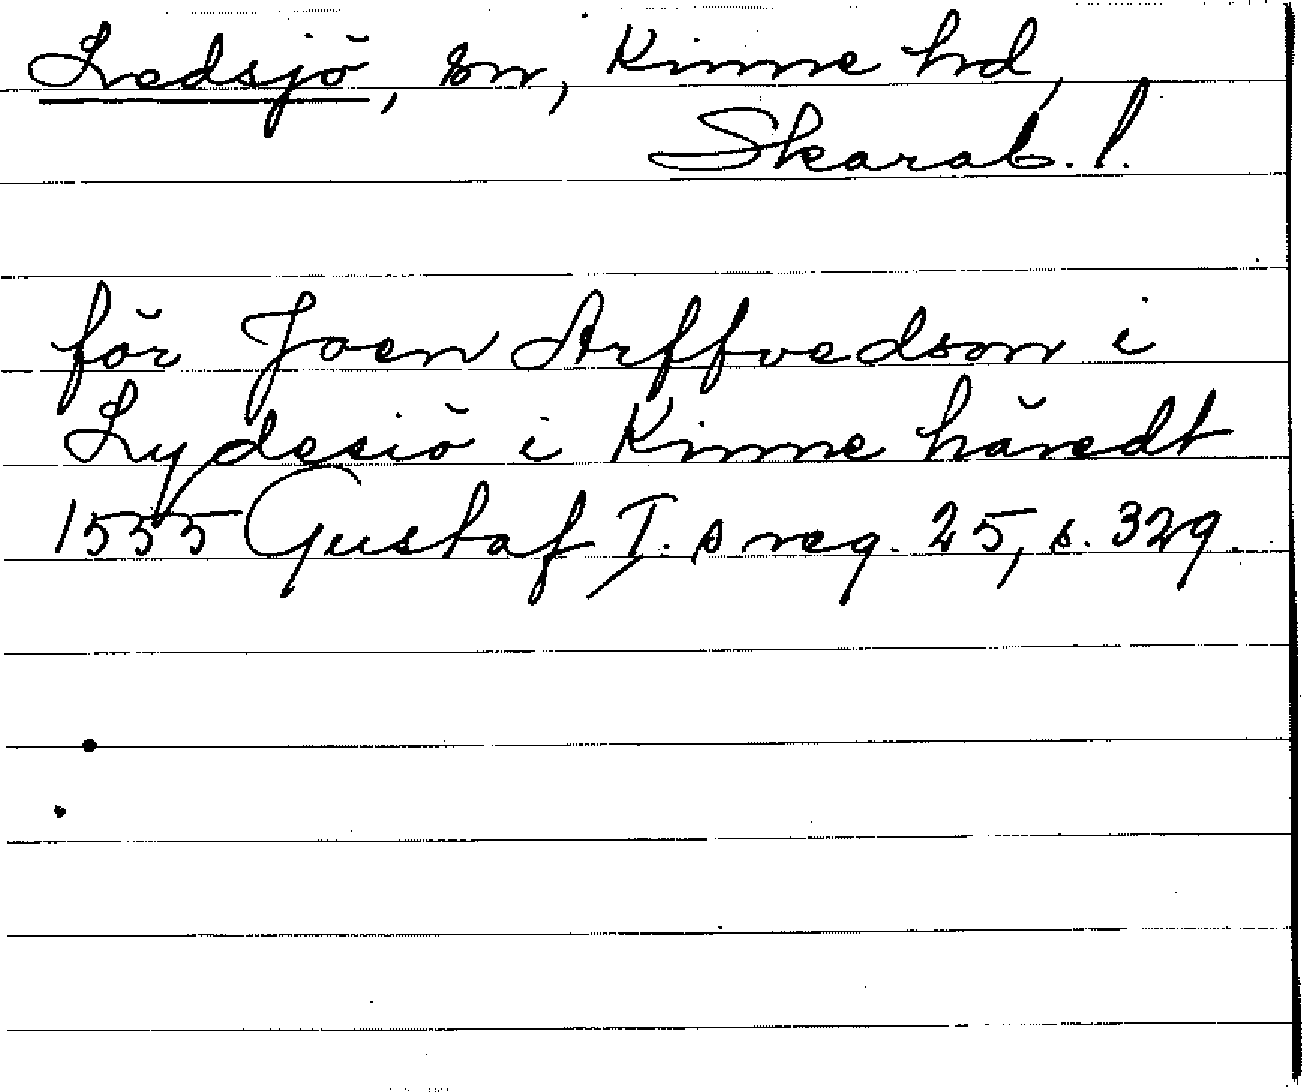 Ledsjö, sn, Kinne hd,
Skarab. l.
för Joen Arffvedson i
Lydesiö i Kinne häredt
1555 Gustaf I. s reg. 25, s. 329.